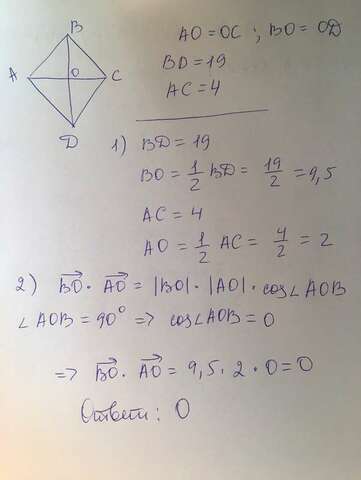 B
A O C
D
AO = OC ; BO = OD
BD = 19
AC = 4
1) BD = 19
BO = 1/2 BD = 19/2 = 9,5
AC = 4
AO = 1/2 AC = 4/2 = 2
2) \overrightarrow{BO} · \overrightarrow{AO} = |BO| · |AO| · cos∠AOB
∠AOB = 90° => cos∠AOB = 0
=> \overrightarrow{BO} · \overrightarrow{AO} = 9,5 · 2 · 0 = 0
Ответ: 0